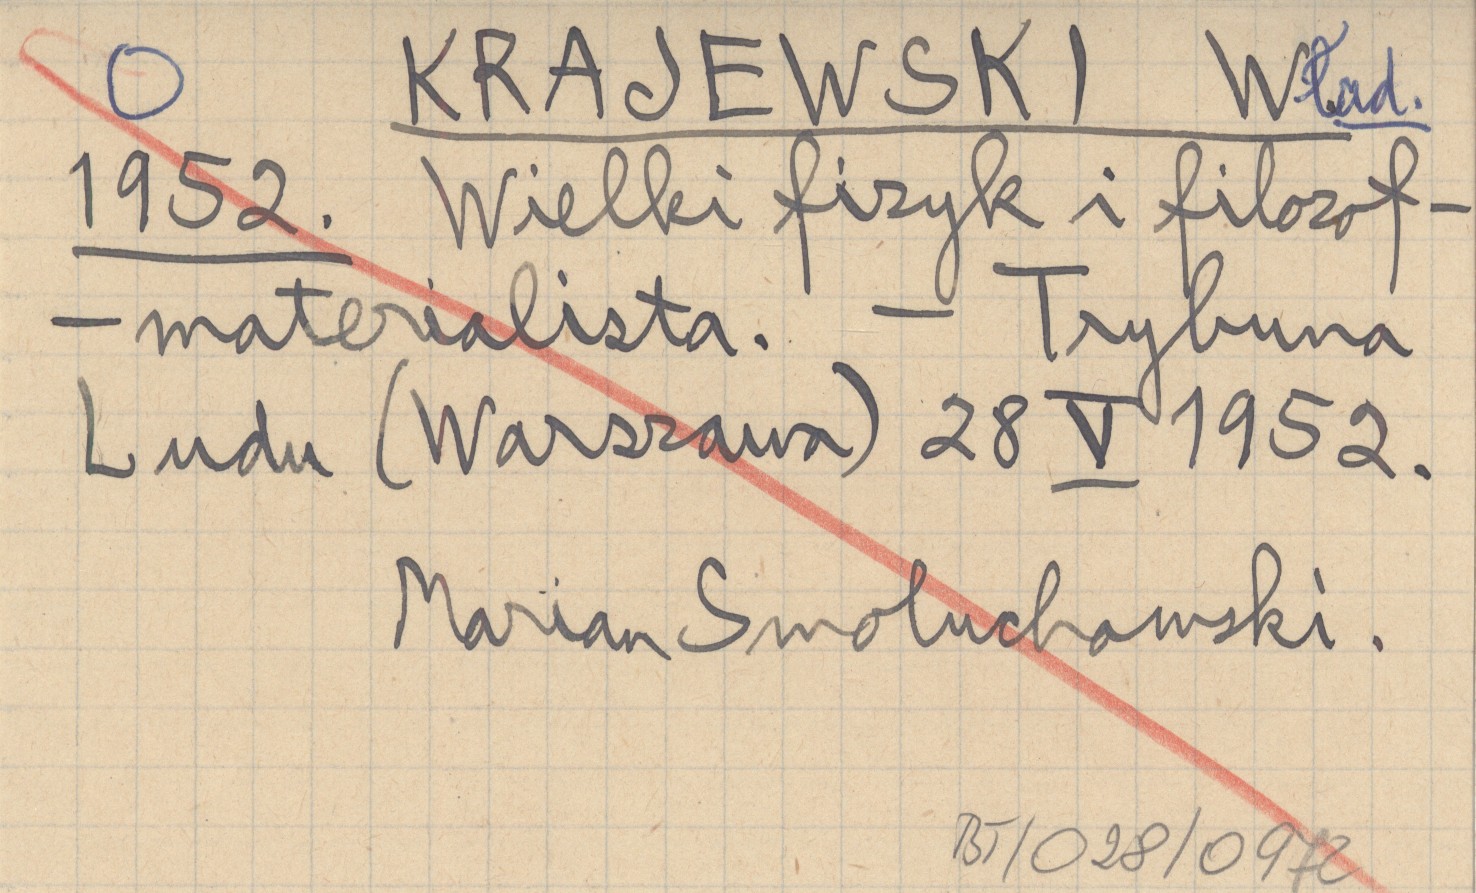 O KRAJEWSKI Wład.
1952. Wielki fizyk i filozof-
-materialista. - Trybuna
Ludu (Warszawa) 28 V 1952.
Marian Smoluchowski.
BT/028/097